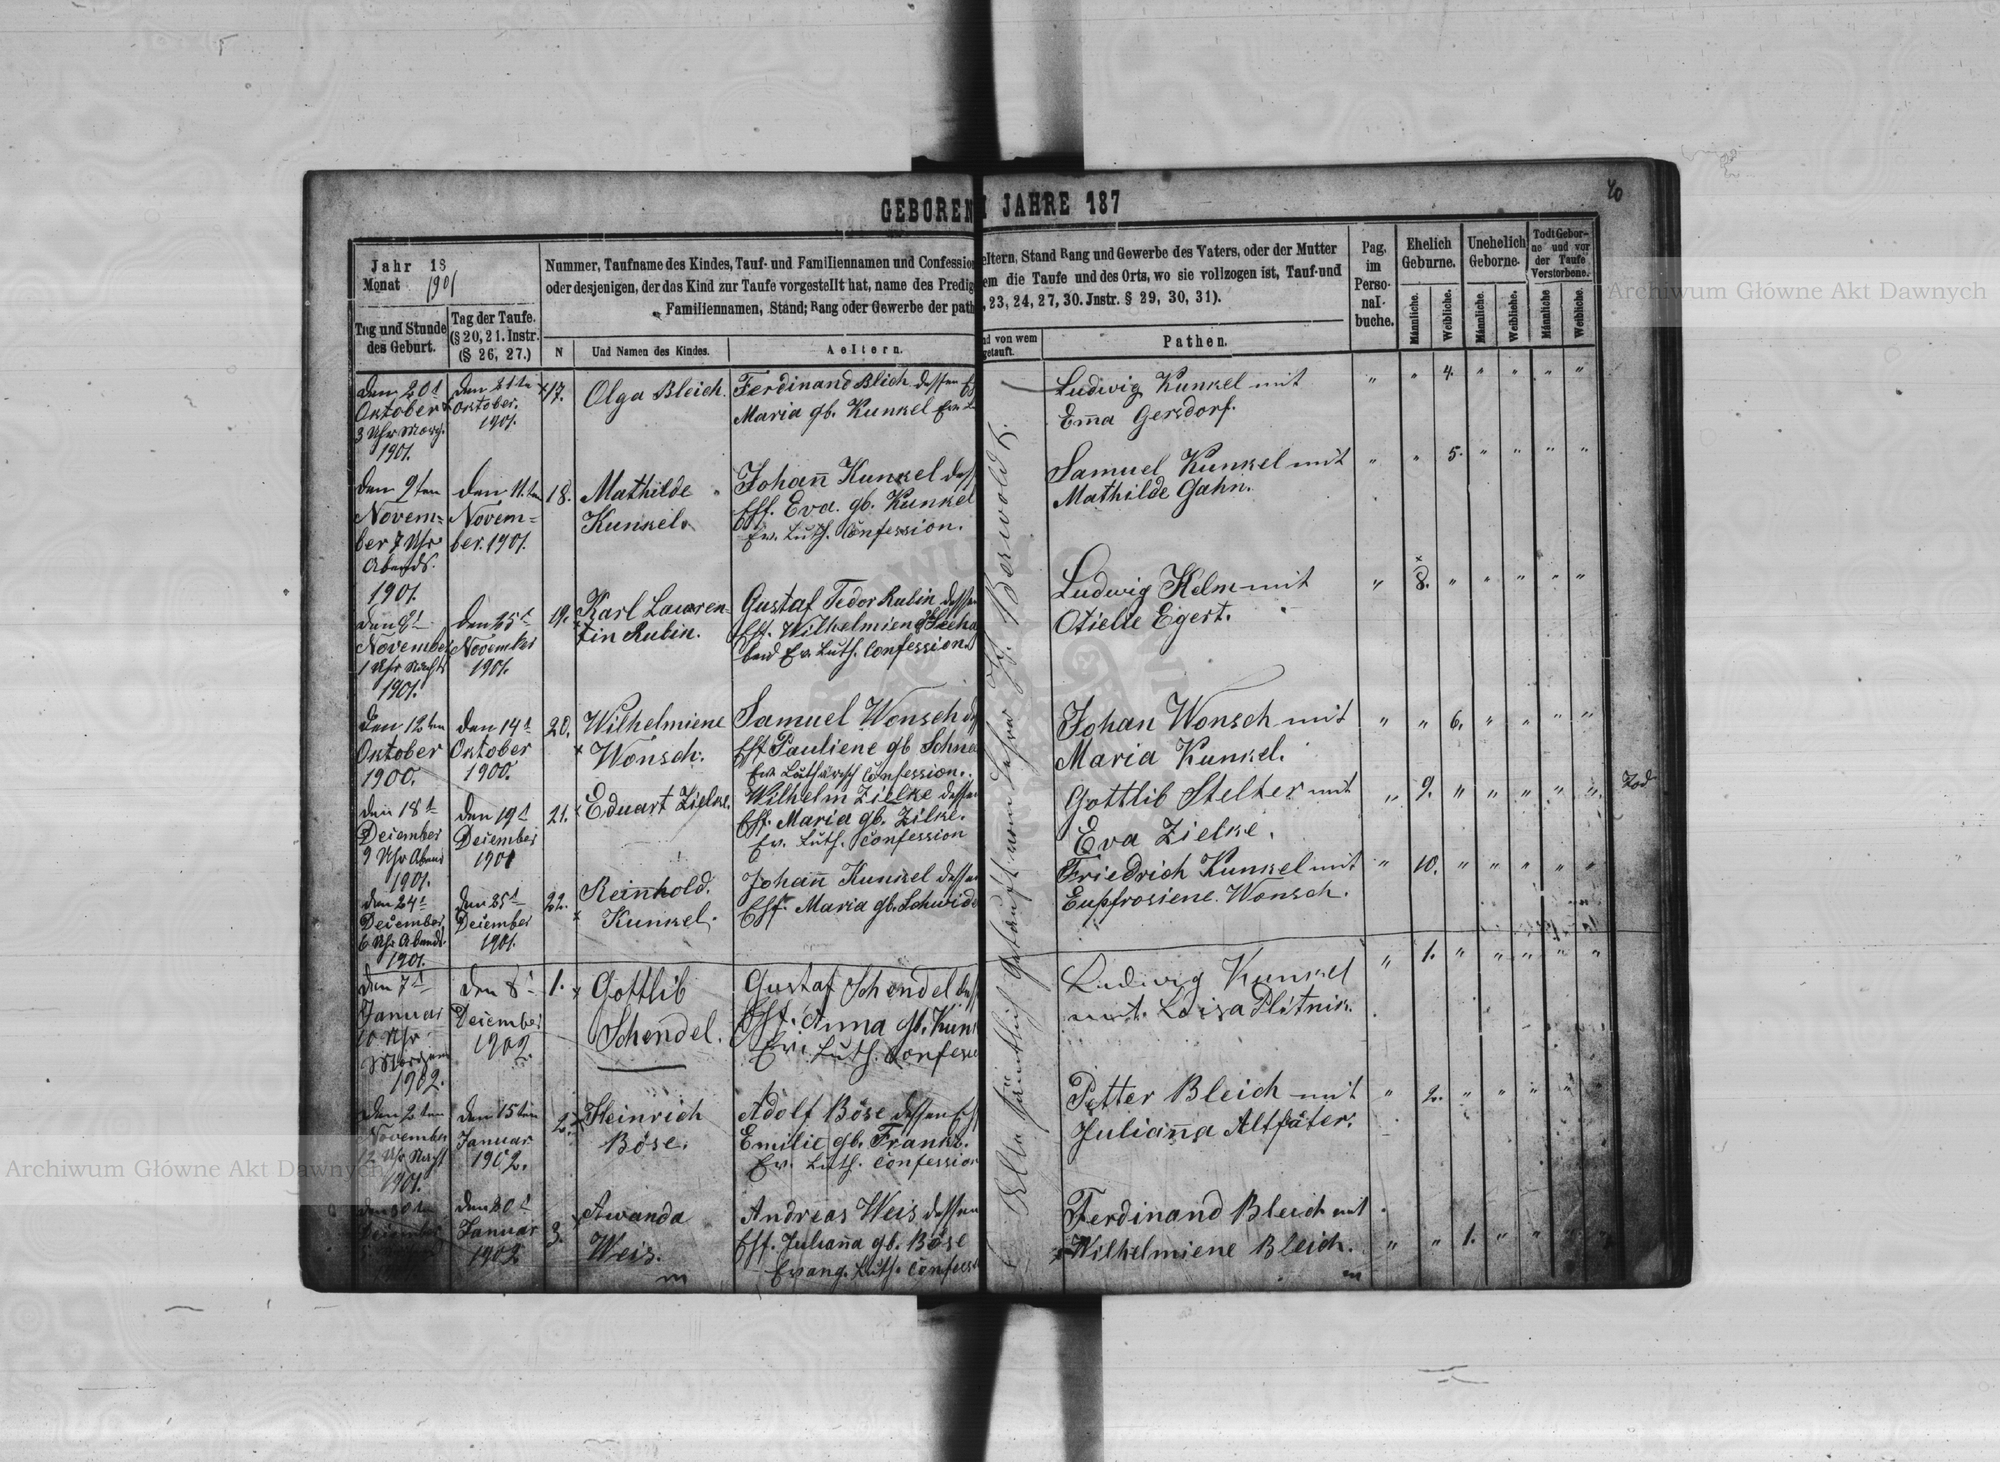 40
GEBOREN
JAHRE 187
Jahr 18
Monat 1901
Nummer, Taufname des Kindes, Tauf- und Familiennamen und Confession
eltern, Stand Rang und Gewerbe des Vaters, oder der Mutter
oder desjenigen, der das Kind zur Taufe vorgestellt hat, name des Predig
em die Taufe und des Orts, wo sie vollzogen ist, Tauf-und
Familiennamen, Stand; Rang oder Gewerbe der path
, 23, 24, 27, 30. Jnstr. § 29, 30, 31).
Pag, im Perso- nal- buche.
Ehelich Geburne.
Unehelich Geborne.
Todt Gebor- ne und vor der Taufe Verstorbene.
Männliche. Weibliche. Männliche. Weibliche. Männliche Weibliche.
Tag und Stunde des Geburt.
Tag der Taufe. (§ 20, 21. Instr. (§ 26, 27.)
N
Und Namen des Kindes.
Aeltern.
nd von wem getauft.
Pathen.
Den 20t
Oktober
3 Uhr Morg.
1901.
Den 21ten
Oktober.
1901.
17.
Olga Bleich.
Ferdinand Blich dessen
Maria gb. Kunkel Ev.
Ludwig Kunkel mit
Emma Gersdorf.
" " 4. " " " "
Den 9ten
Novem=
ber 7 Uhr
Abends.
1901.
Den 11.ten
Novem=
ber. 1901.
18.
Mathilde
Kunkel.
Johann Kunkel
Ehf. Eva. gb. Kunkel
Ev. Luth. Confession.
Samuel Kunkel mit
Mathilde Gahn.
" " 5. " " " "
Den 8t
November
1 Uhr Nachts
1901.
Den 25t
November
1901.
19.
Karl Lauren-
tin Rubin.
Gustaf Fedor Rubin dessen
Ehf. Wilhelmiene
Ev. Luth. Confession.
Ludwig Helm mit
Otielie Egert.
" 8. " " " " "
Den 12ten
Oktober
1900.
Den 14t
Oktober
1900.
20.
Wilhelmiene
Wonsch.
Samuel Wonsch
Ehf Pauliene gb Schne
Ev. Lutharisch Confession.
Johan Wonsch mit
Maria Kunkel.
" " 6. " " " "
Den 18t
December
9 Uhr Abend
1901.
Den 19t
December
1901
21.
Eduart Zielke.
Wilhelm Zielke dessen
Ehf. Maria gb. Zilke.
Ev. Luth. Confession
Gottlib Stelter mit
Eva Zielke.
" 9. " " " " "
Tod
Den 24t
December
6 Uhr Abends.
1901.
Den 25t
December
1901.
22.
Reinhold.
Kunkel.
Johann Kunkel dessen
Ehf. Maria gb. Schmide
Friedrich Kunkel mit
Eupfrosiene Wonsch.
" 10. " " " " "
Den 7t
Januar
10 Uhr
Morgen
1902.
Den 8t
December
1902.
1.
Gottlib
Schendel.
Gustaf Schendel
Ehf. Anna gb. Kun
Ev. Luth. Confess
Ludwig Kunkel
mit. Loisa Plitnik.
" 1. " " " " "
Den 2ten
November
12 Uhr Nacht
1901.
Den 15ten
Januar
1902.
2.
Heinrich
Böse.
Adolf Böse dessen Eh
Emilie gb. Franke.
Ev. Luth. Confession
Petter Bleich mit
Julianna Altfäter.
" 2. " " " "
Den 30ten
December
Den 20t
Januar
1902
3.
Awanda
Weis.
Andreas Weis dessen
Ehf. Julianna gb. Böse
Evang. Luth. Confess
Ferdinand Bleich mit
Wilhelmiene Bleich.
" " 1. " "
Archiwum Główne Akt Dawnych
Archiwum Główne Akt Dawnych